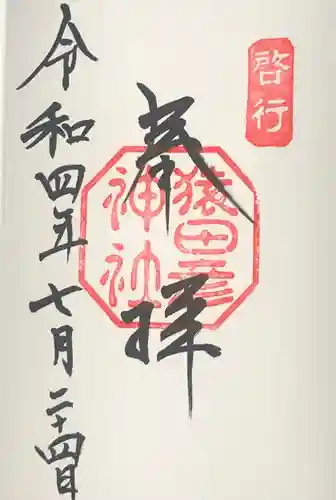 啓行
奉拝
猿田彦
神社
令和四年七月二十四日